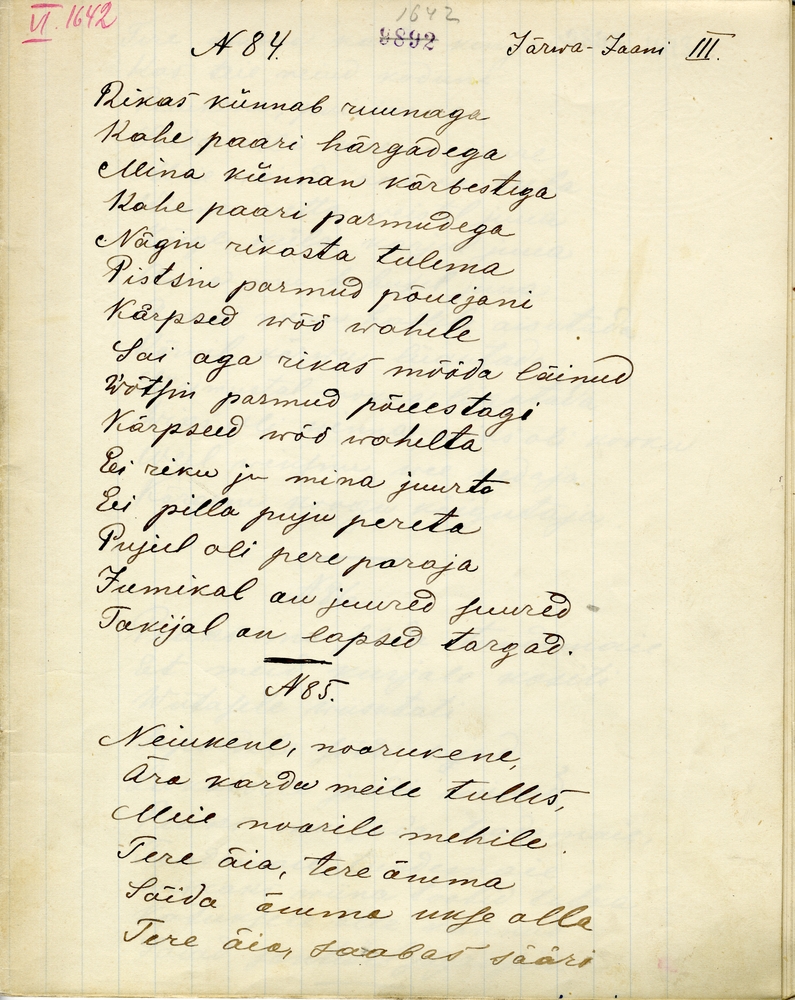 VI. 1642
1642
N 84.
9892
Järwa-Jaani III.
Rikas künnab ruunaga
Kahe paari härgädega
Mina künnan kärbestega
Kahe paari parmudega
Nägin rikasta tulema
Pistsin parmud põuejani
Kärpsed wöö wahele
Sai aga rikas mööda läinud
Wõtsin parmud põuestagi
Kärpseed wöö wahelta
Ei riku ju mina juurta
Ei pilla puju pereta
Pujul oli pere paraja
Jumikal on juured suured
Takijal on lapsed targad.
N 85.
Neiukene, noorukene,
Ära karda meile tulles,
Meie noorile mehile.
Tere äia, tere ämma
Sõida ämma ukse alla
Tere äia, saabas sääri